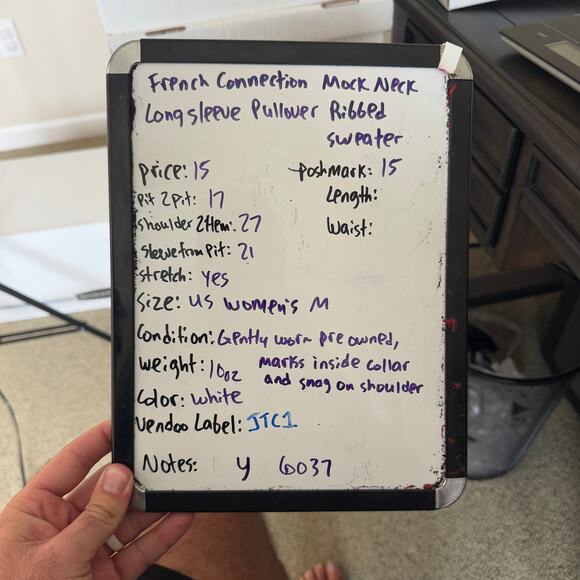 French Connection Mock Neck
Longsleeve Pullover Ribbed
sweater
price: 15
poshmark: 15
Pit 2 Pit: 17
Length:
Shoulder 2 Hem: 27
Waist:
Sleeve from Pit: 21
stretch: yes
Size: US Women's M
Condition: Gently worn pre owned,
marks inside collar
and snag on shoulder
weight: 10oz
Color: white
Vendoo Label: JTC1
Notes: Y 6037